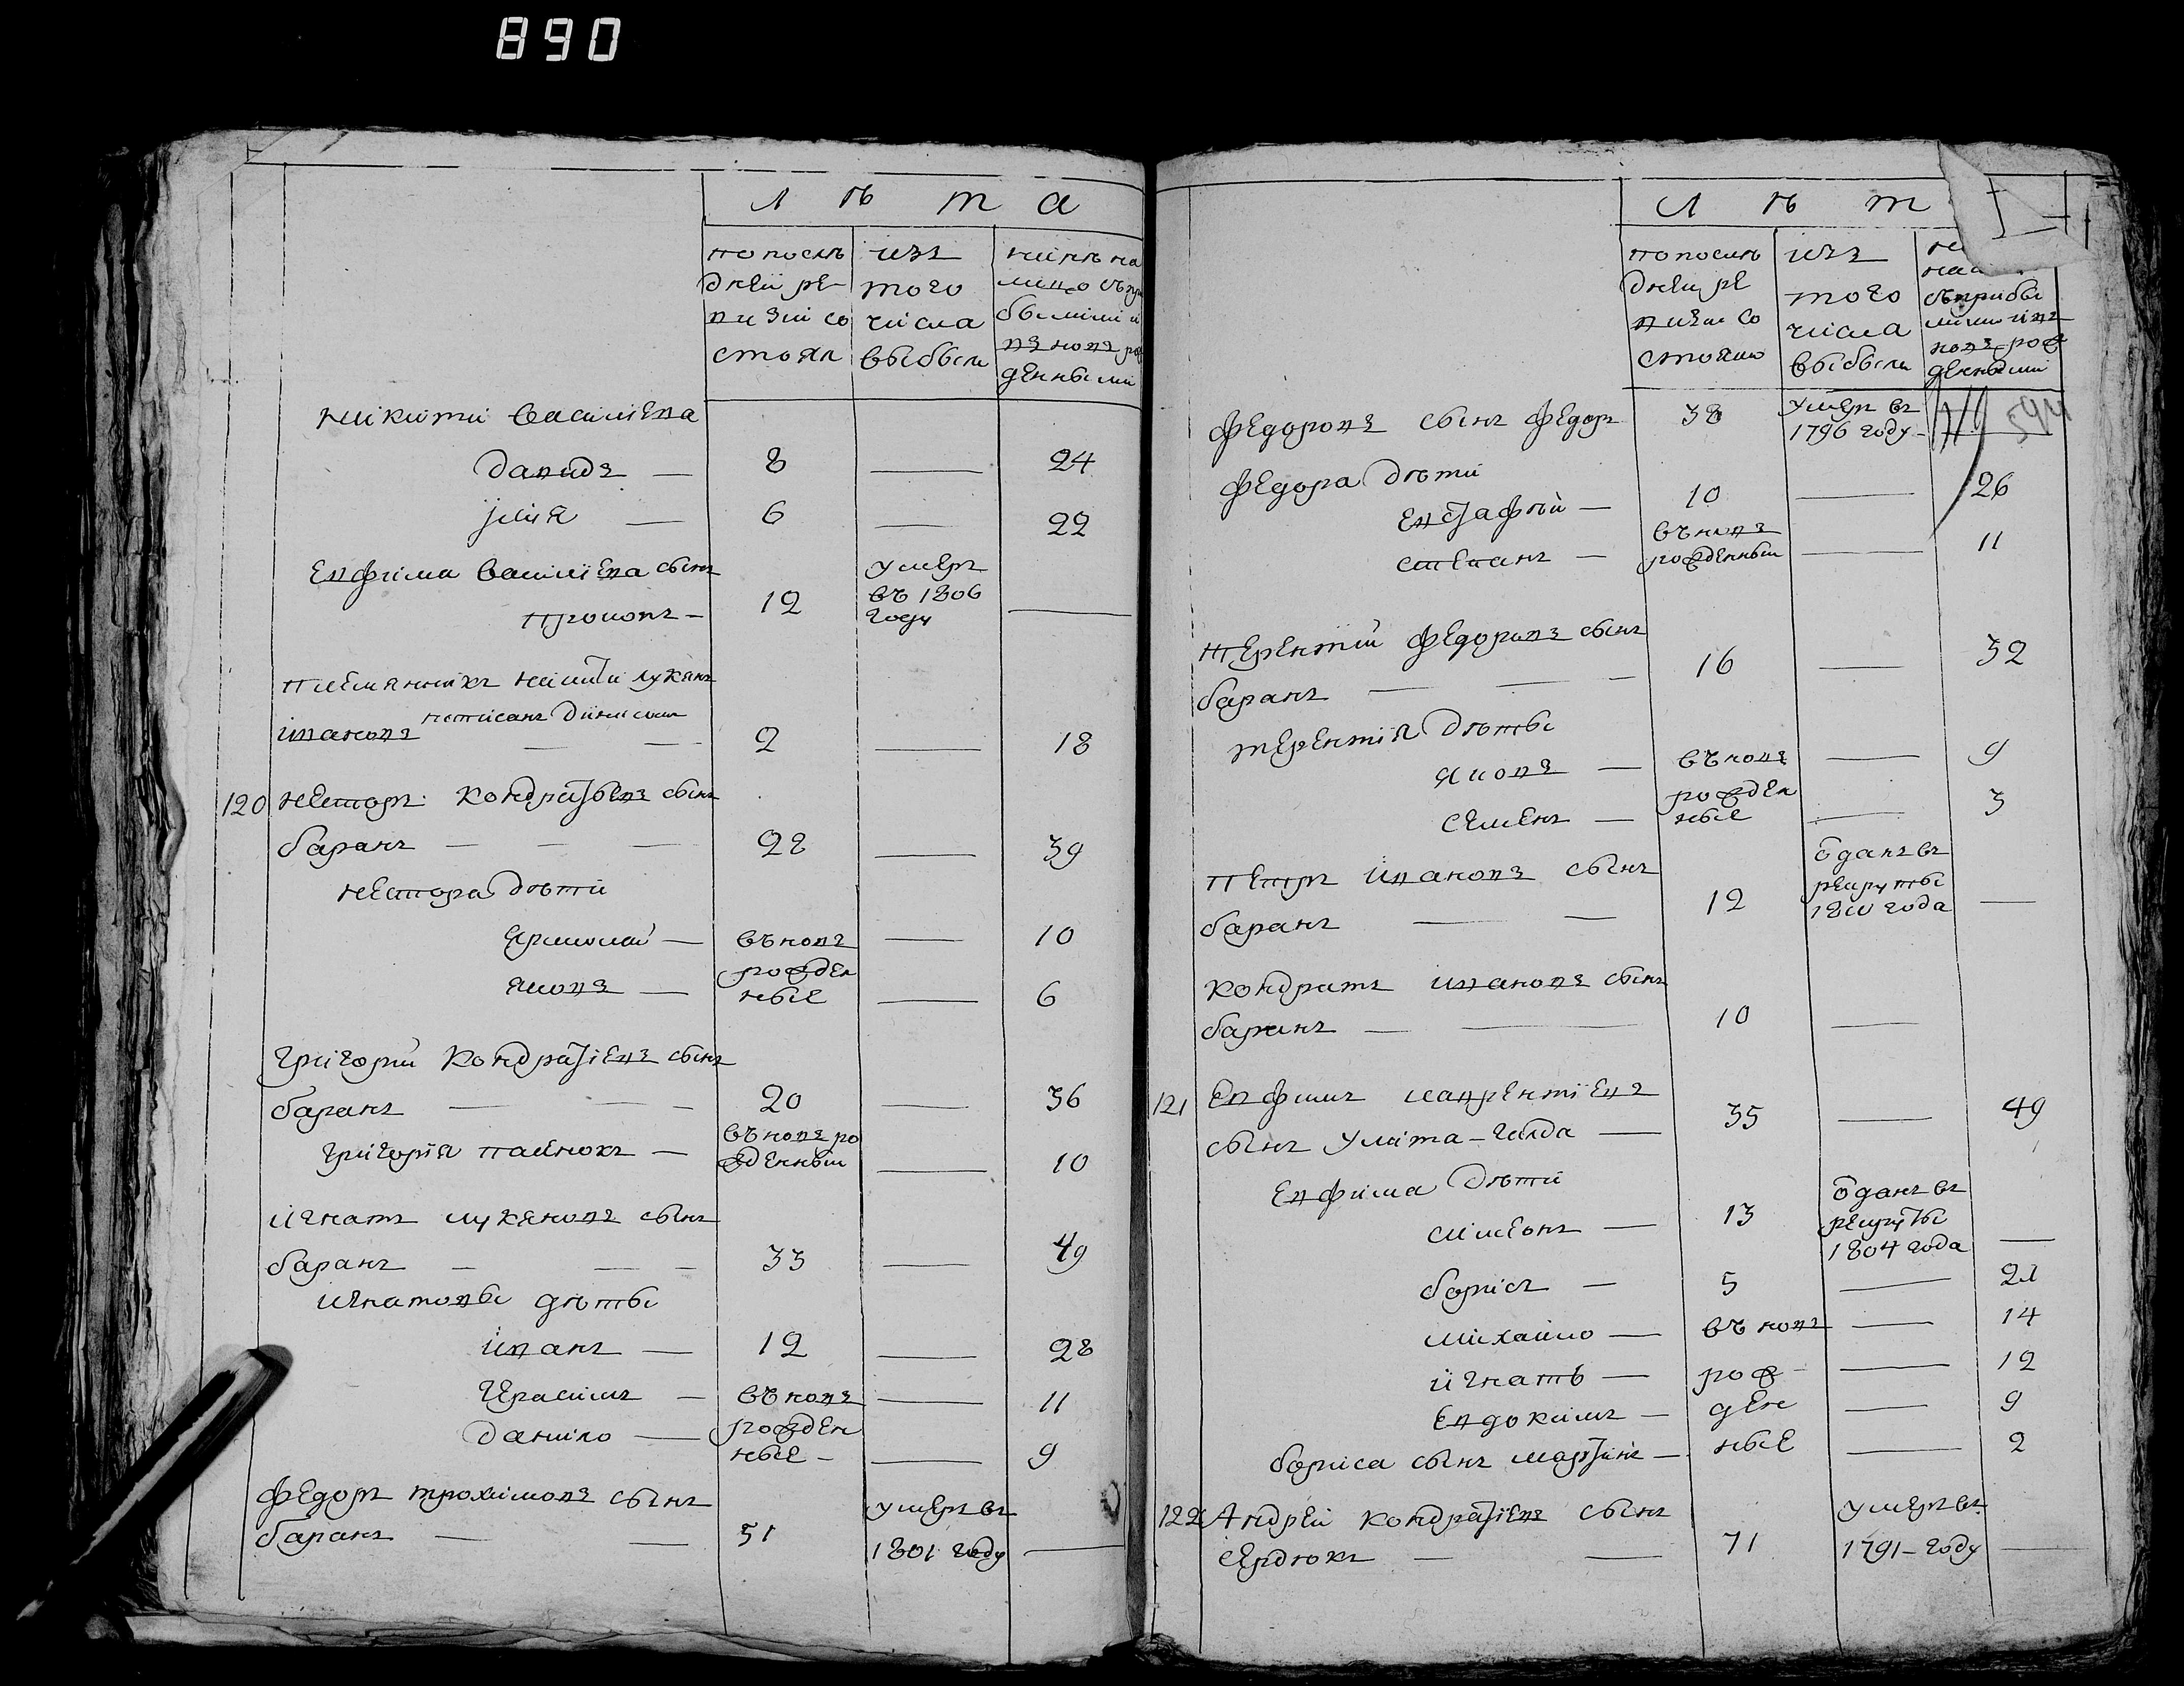 890
Л ѣ т а
попослѣ
дней ре-
визіи со
стоял
изъ
того
числа
выбыли
нинѣ на
лицо съпри
былими и
вновь рож
денными
никити василіева
давидъ — 8 — 24
илія — 6 — 22
Евфима василіева сынъ
прокопъ — 12 умеръ въ 1806 году —
племянникъ никити лукянъ
ивановъ написанъ
2 — 18
120 несторъ кондратьевъ сынъ
баранъ — 22 — 39
нестора дѣти
Ярмолай — въновъ — 10
яковъ — рожден ные — 6
григорій кондратіевъ сынъ
баранъ — 20 — 36
григорія павлюкъ — въновъ ро жденный — 10
игнатъ лукяновъ сынъ
баранъ — 33 — 49
игнатовы дѣты
иванъ — 12 — 28
герасимъ — въновъ — 11
данило — рожден ные — 9
федоръ трохимовъ сынъ
баранъ — 51 умеръ въ 1801 году —
Л ѣ т
попослѣ
дней ре
визіи со
стояло
изъ
того
числа
выбыли
съприбы
лими ивъ
новъ рож
денными
федоровъ сынъ федоръ 38 умеръ въ 1796 году — 594
федора дѣти
Евстафій — 10 — 26
степанъ — въновъ рожденный — 11
терентій федоровъ сынъ
баранъ — 16 — 32
терентія дѣты
яковъ — въновъ — 9
семенъ — рожден ные — 3
петръ ивановъ сынъ
баранъ — 12 ѿданъ въ рекруты 1810 года —
кондратъ ивановъ сынъ
баранъ — 10 —
121 Евфимъ лаврентіевъ
сынъ улита-галда — 35 — 49
Евфима дѣти
симеонъ — 13 ѿданъ въ рекруты 1804 года —
борисъ — 5 — 21
михайло — въ новъ — 14
игнатъ — рож — 12
Евдокимъ — ден — 9
бориса сынъ мартинъ — ные — 2
122 Андрей кондратіевъ сынъ
сердюкъ — 71 умеръ въ 1791 — году —